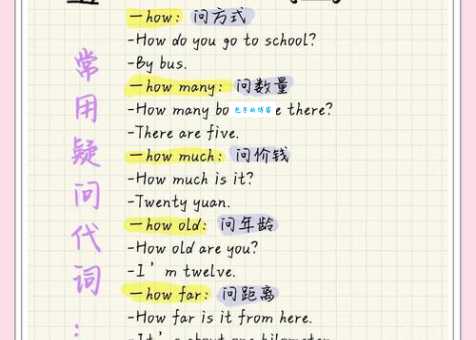 常用疑问代词：
一how：问方式
-How do you go to school?
-By bus.
一how many：问数量
-How many bo e there?
-There are five.
一how much：问价钱
-How much is it?
-Twenty yuan.
一how old：问年龄
-How old are you?
-I'm twelve.
一how far：问距离
-How far is it from here.
-It's about one kilometer